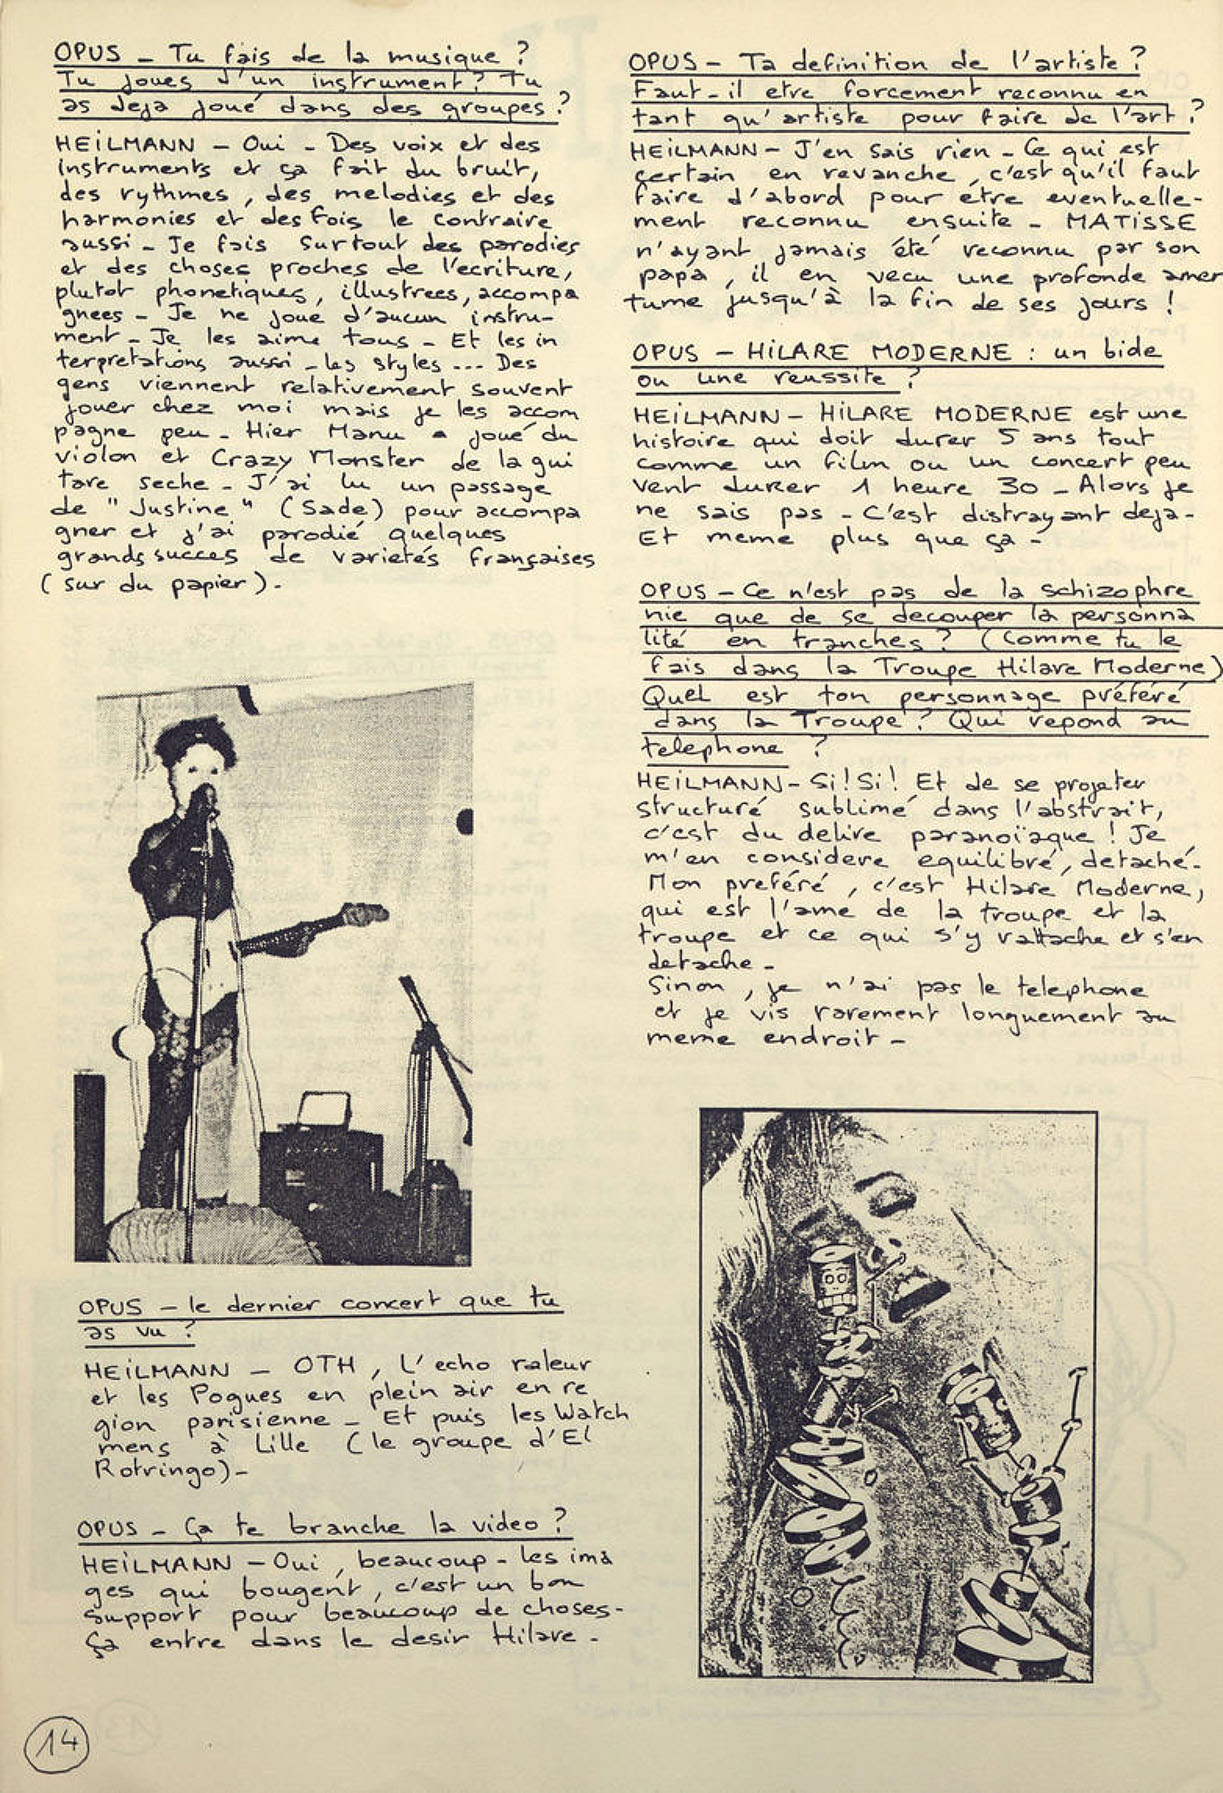 OPUS - Tu fais de la musique ?
Tu joues d'un instrument ? Tu
as deja joué dans des groupes ?
HEiLMANN - Oui - Des voix et des
instruments et ça fait du bruit,
des rythmes, des melodies et des
harmonies et des fois le contraire
aussi - Je fais surtout des parodies
et des choses proches de l'ecriture,
plutot phonetiques, illustrees, accompa
gnees - Je ne joue d'aucun instru-
ment - Je les aime tous - Et les in
terpretations aussi - les styles ... Des
gens viennent relativement souvent
jouer chez moi mais je les accom
pagne peu - Hier Manu a joué du
violon et Crazy Monster de la gui
tare seche - J'ai lu un passage
de "Justine" (Sade) pour accompa
gner et j'ai parodié quelques
grands succes de varietés françaises
(sur du papier) -
OPUS - le dernier concert que tu
as vu ?
HEiLMANN - OTH, L'echo raleur
et les Pogues en plein air en re
gion parisienne - Et puis les Watch
mens à Lille (le groupe d'El
Rotringo) -
OPUS - Ça te branche la video ?
HEiLMANN - Oui, beaucoup - les ima
ges qui bougent, c'est un bon
support pour beaucoup de choses -
Ça entre dans le desir Hilare -
14
OPUS - Ta definition de l'artiste ?
Faut-il etre forcement reconnu en
tant qu'artiste pour faire de l'art ?
HEiLMANN - J'en sais rien - Ce qui est
certain en revanche, c'est qu'il faut
faire d'abord pour être eventuelle-
ment reconnu ensuite - MATiSSE
n'ayant jamais été reconnu par son
papa, il en vecu une profonde amer
tume jusqu'à la fin de ses jours !
OPUS - HiLARE MODERNE : un bide
ou une reussite ?
HEiLMANN - HiLARE MODERNE est une
histoire qui doit durer 5 ans tout
comme un film ou un concert peu
vent durer 1 heure 30 - Alors je
ne sais pas - C'est distrayant deja -
Et meme plus que ça -
OPUS - Ce n'est pas de la schizophre
nie que de se decouper la personna
lité en tranches ? (Comme tu le
fais dans la Troupe Hilare Moderne)
Quel est ton personnage préféré
dans la Troupe ? Qui repond au
telephone ?
HEiLMANN - Si ! Si ! Et de se projeter
structuré sublimé dans l'abstrait,
c'est du delire paranoïaque ! Je
m'en considere equilibré, detaché -
Mon preféré, c'est Hilare Moderne,
qui est l'ame de la troupe et la
troupe et ce qui s'y rattache et s'en
detache -
Sinon, je n'ai pas le telephone
et je vis rarement longuement au
meme endroit -